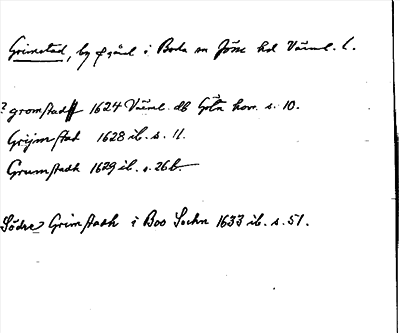 Grimstad, by o gård i Boda sn Jösse hd Värml. l.
? gromstadh 1624 Värml. db Gbln koṛr. s. 10.
Grijmstad 1628 ib. s. 11.
Grumstadh 1629 ib. s. 26b.
Södre Grimstadh i Boo Sochn 1633 ib. s. 51.